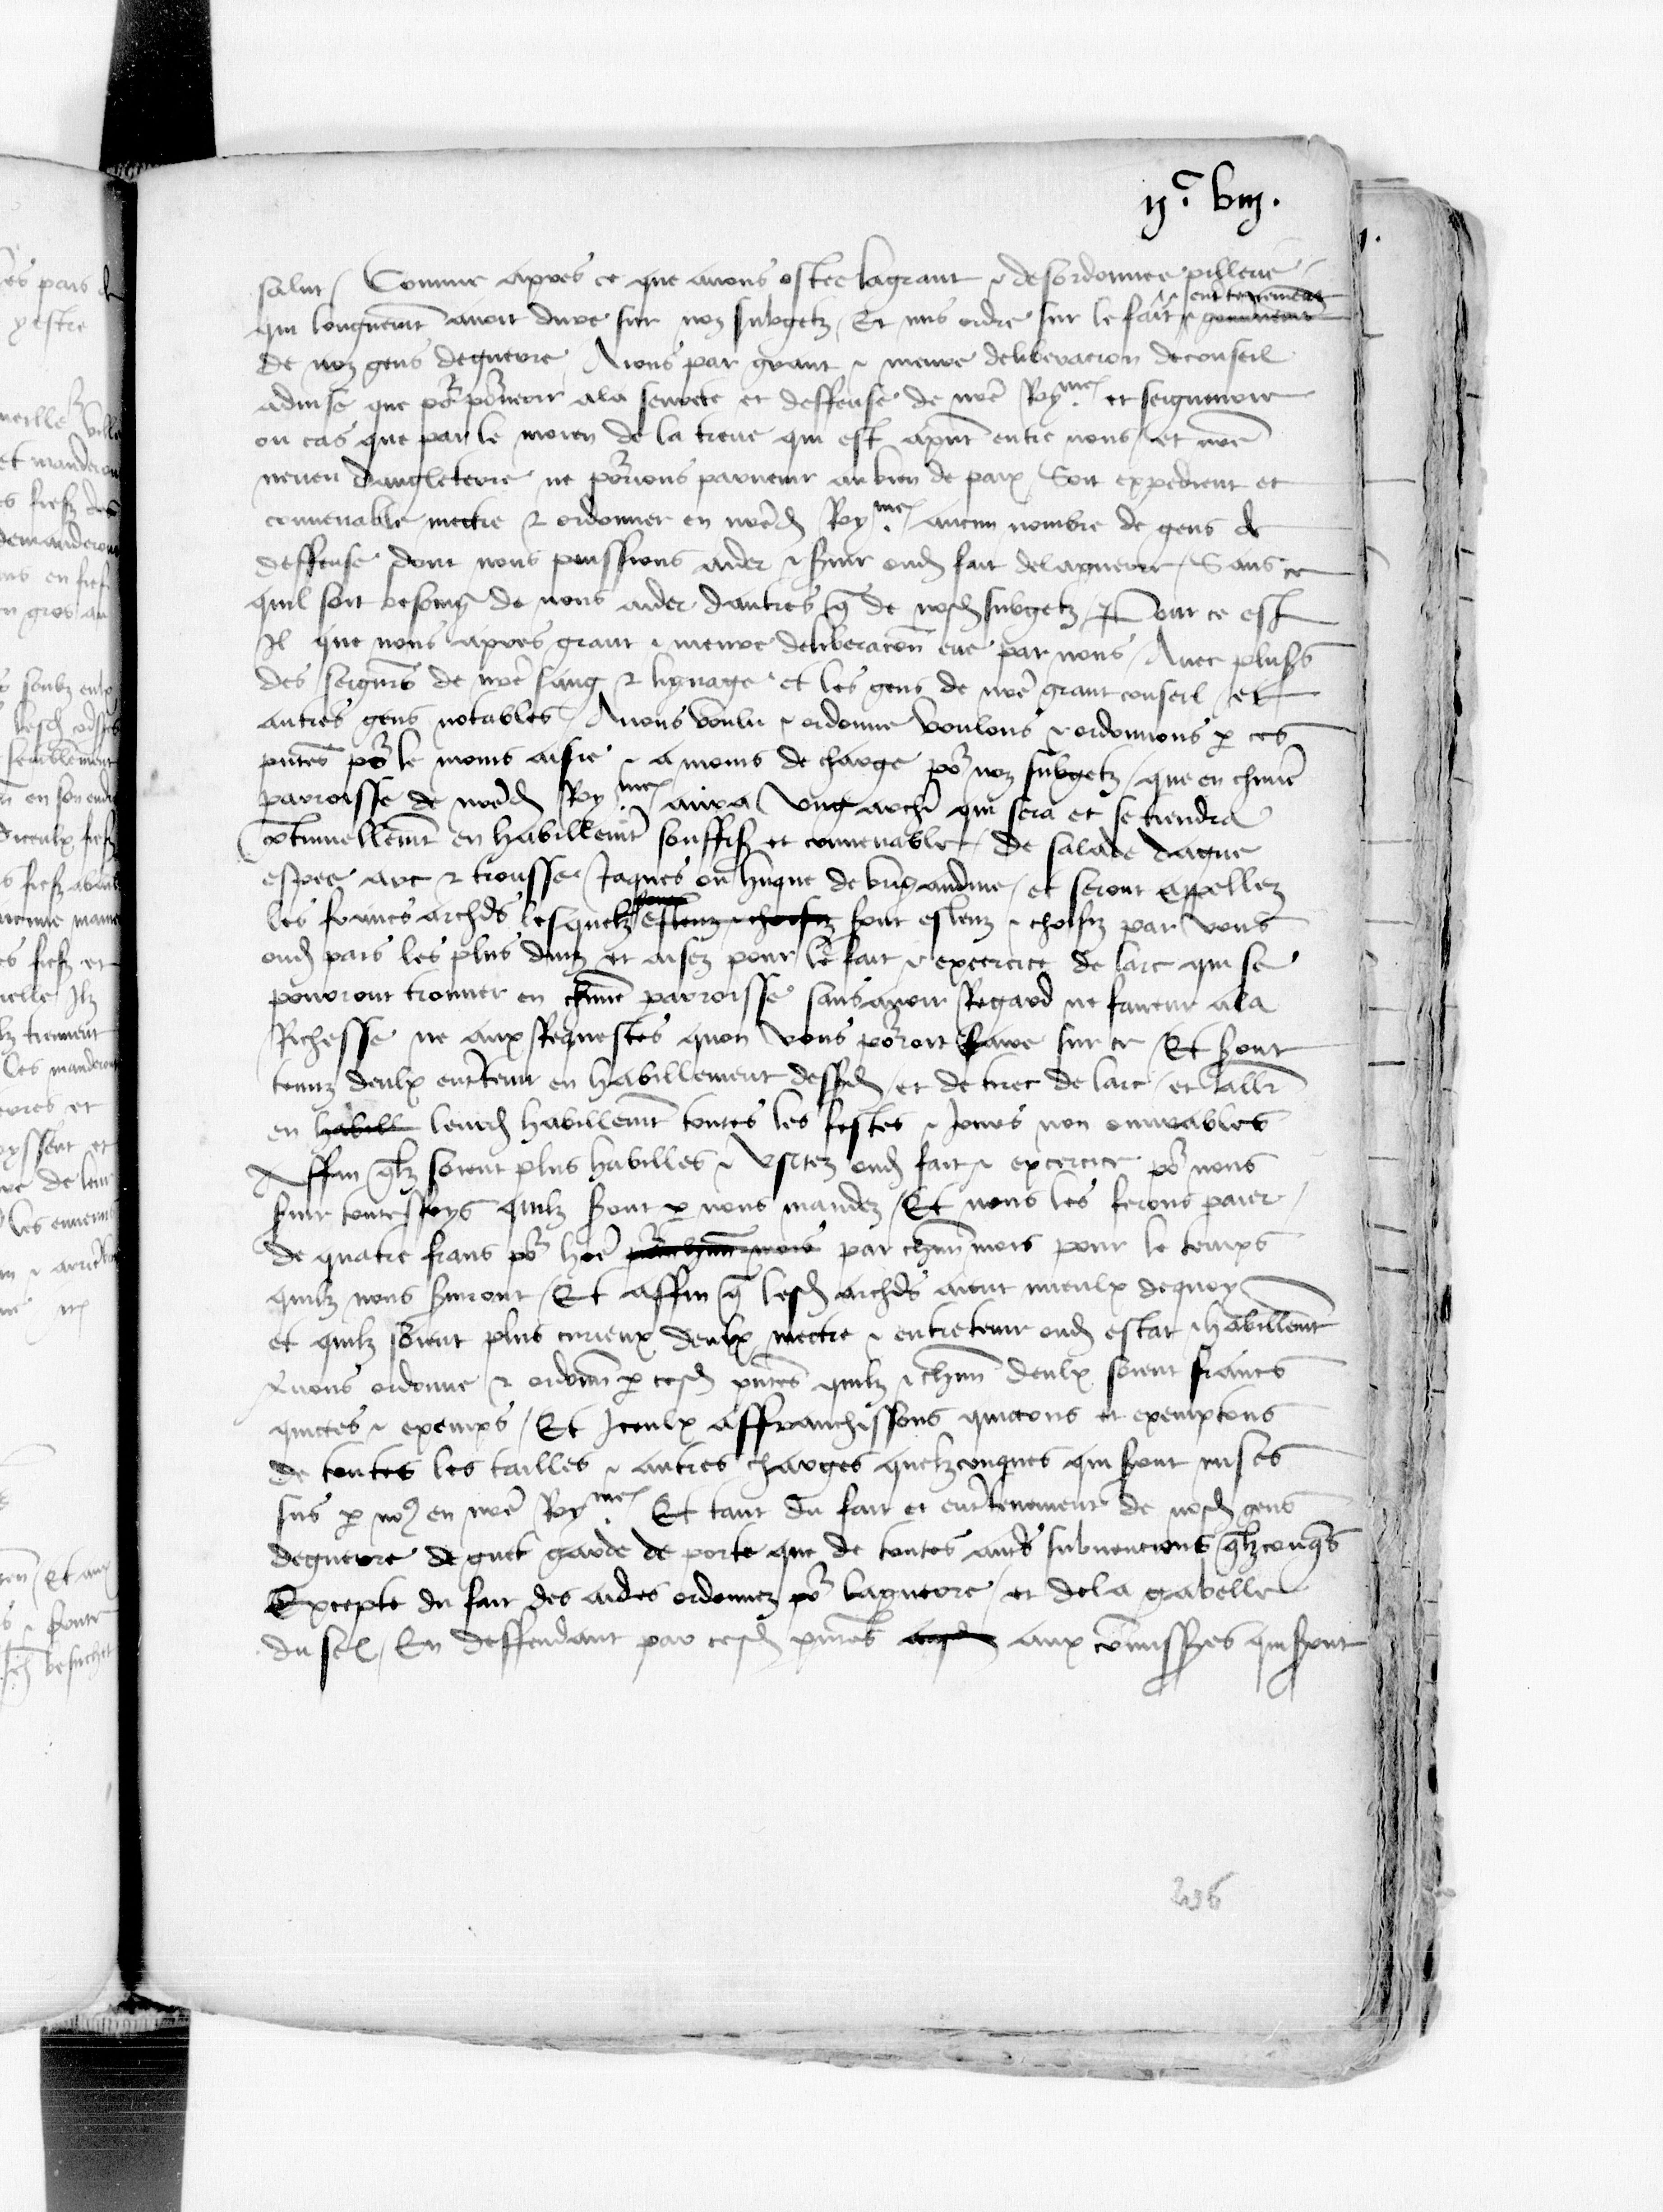 ijc. viij.
salut / Comme apres ce que avons ostee la grant & desordonnee pillerie
qui longuemt avoit dure sur noz subgetz / Et mis ordre sur le fait & entretenement
de noz gens de guerre Avons par grant & meure deliberacion de conseil
advise que por porveoir a la seurete et deffense de nre Royme et seigneurie
ou cas que par le moien de la treue qui est apnt entre nous et nre
neveu dangleterre ne porrions parvenir au bien de paix Soit expedient et
convenable mectre & ordonner en nred Royme aucun nombre de gens de
deffense dont nous puissions aider & servir oud fait de la guerre / Sans ce
quil soit besoing de nous aider dautres q de nosd subgetz / Pour ce est
Il que nous apres grant & meure deliberacon eue par nous / Avec plusrs
des seigneurs de nre sang & lignage et les gens de nre grant conseil et
autres gens notables / Avons voulu & ordonne voulons & ordonnons p ces
pntes por le moins aisie & a moins de charge por noz subgetz / que en chune
parroisse de nred Royme aura ung archr qui sera et se tiendra
continuellemt en habillemt souffis et convenable / de salade dague
espee arc & trousse Jaques ou huque de brigandine / et seront appellez
les francs archrs lesquelz seront esleuz & choisiz par vous
oud pais les plus duiz et aisez pour le fait & excercice de larc qui se
pourront trouver en chune parroisse sans avoir Regard ne faveur a la
Richesse ne aux Requestes quon vous porroit faire sur ce / Et seront
tenuz deulx entretenir en habillement dessusd / et de tirer de larc / et aller
en habill leurd habillemt toutes les festes & jours non ouvrables
Affin qlz soient plus habilles & usitez oud fait & excercice por nous
servir toutesfoys quilz seront p nous mandez / Et nous les ferons paier
de quatre frans por hoe par chun mois pour le temps
quilz nous serviront / Et affin q lesd archrs aient mieulx de quoy
et quilz soient plus curieux deulx mectre & entretenir oud estat & habillemt
Avons ordonne & ordonn p cesd pntes quilz & chun deulx soient francs
quictes & exemps / Et Iceulx affranchissons quictons et exemptons
de toutes les tailles & autres charges quelzconques qui seront mises
sus p nous en nre Royme Et tant du fait et entretenement de nosd gens
de guerre de guet garde de porte que de toutes autrs subvencions qlzconqs
Excepte du fait des aides ordonnez por la guerre / et de la gabelle
du sel / En deffendant par cesd pntes aux commissres qui seront
236